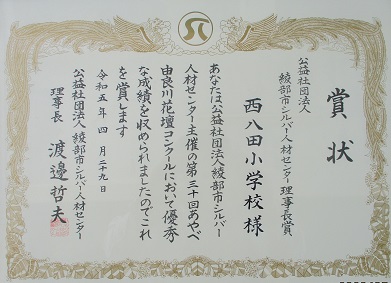 賞状
公益社団法人
綾部市シルバー人材センター理事長賞
西八田小学校様
あなたは公益社団法人綾部市シルバー
人材センター主催の第三十回あやべ
由良川花壇コンクールにおいて優秀
な成績を収められましたのでこれ
を賞します
令和五年四月二十九日
公益社団法人綾部市シルバー人材センター
理事長 渡邉哲夫